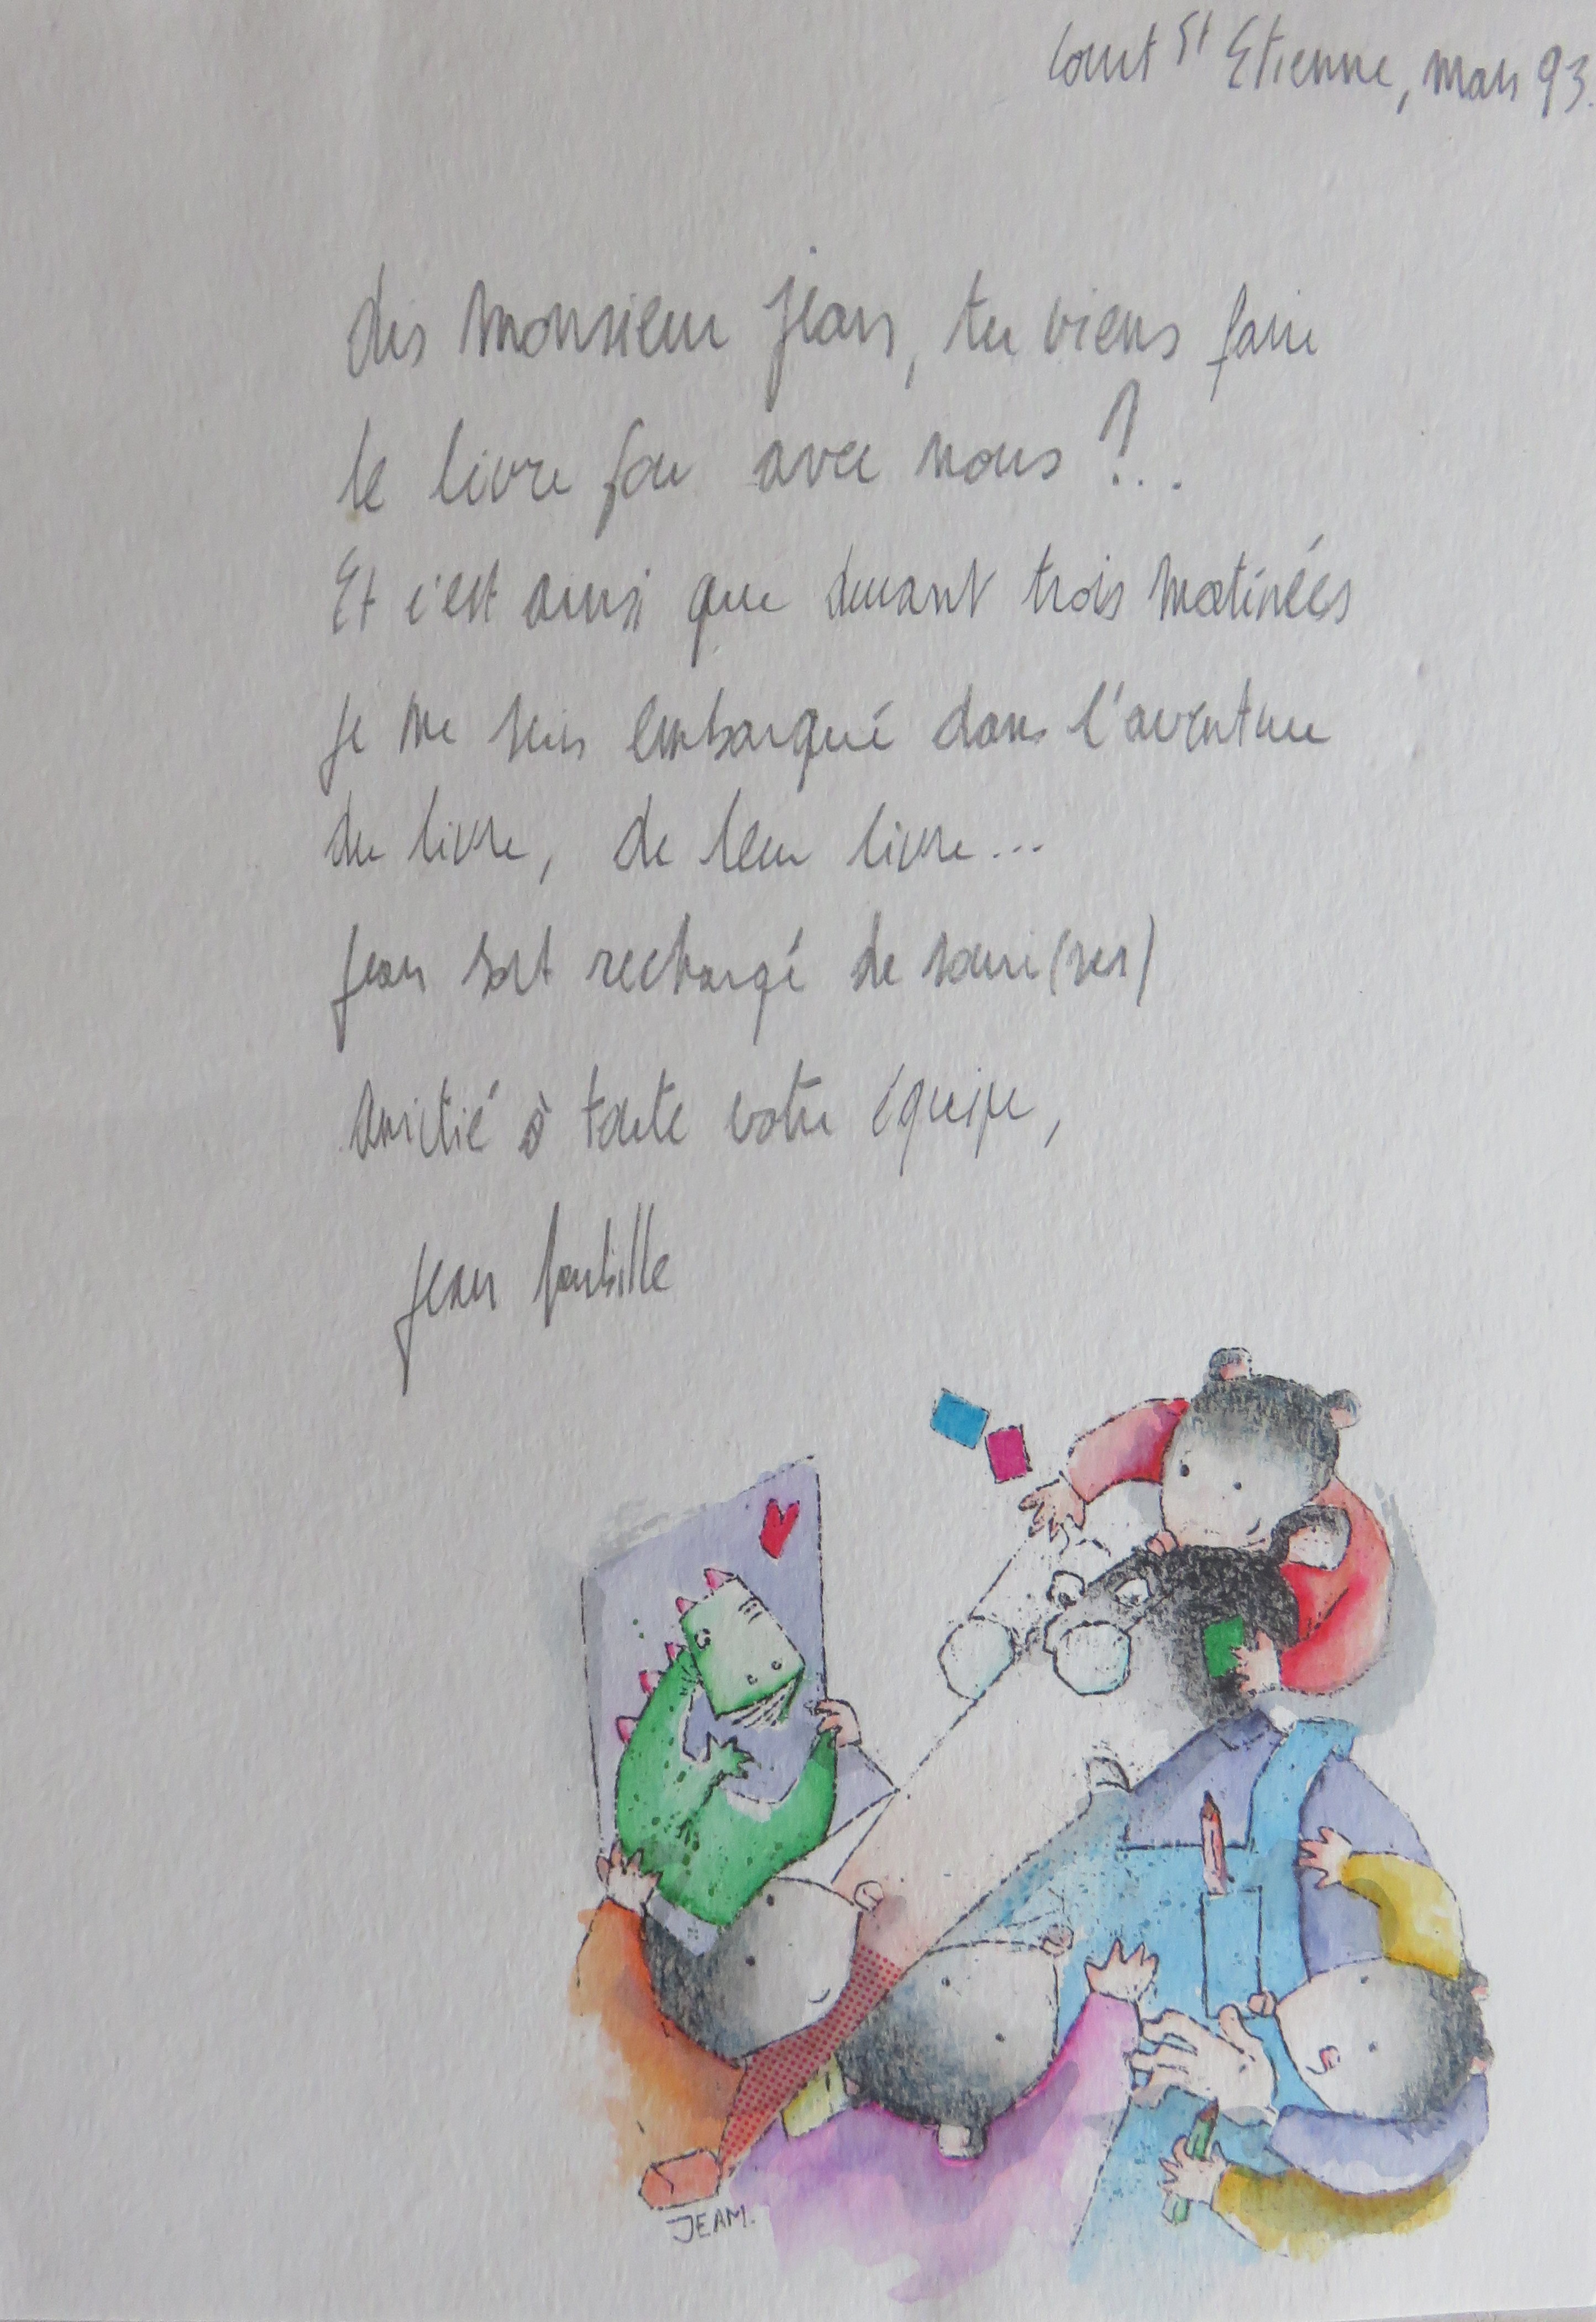 Court St Etienne, mars 93.
dis monsieur jean, tu viens faire
le livre fou avec nous ?..
Et c'est ainsi que durant trois matinées
je me suis embarqué dans l'aventure
du livre, de leur livre...
jean sort rechargé de souri(res)
amitié à toute votre équipe,
jean
JEAM.